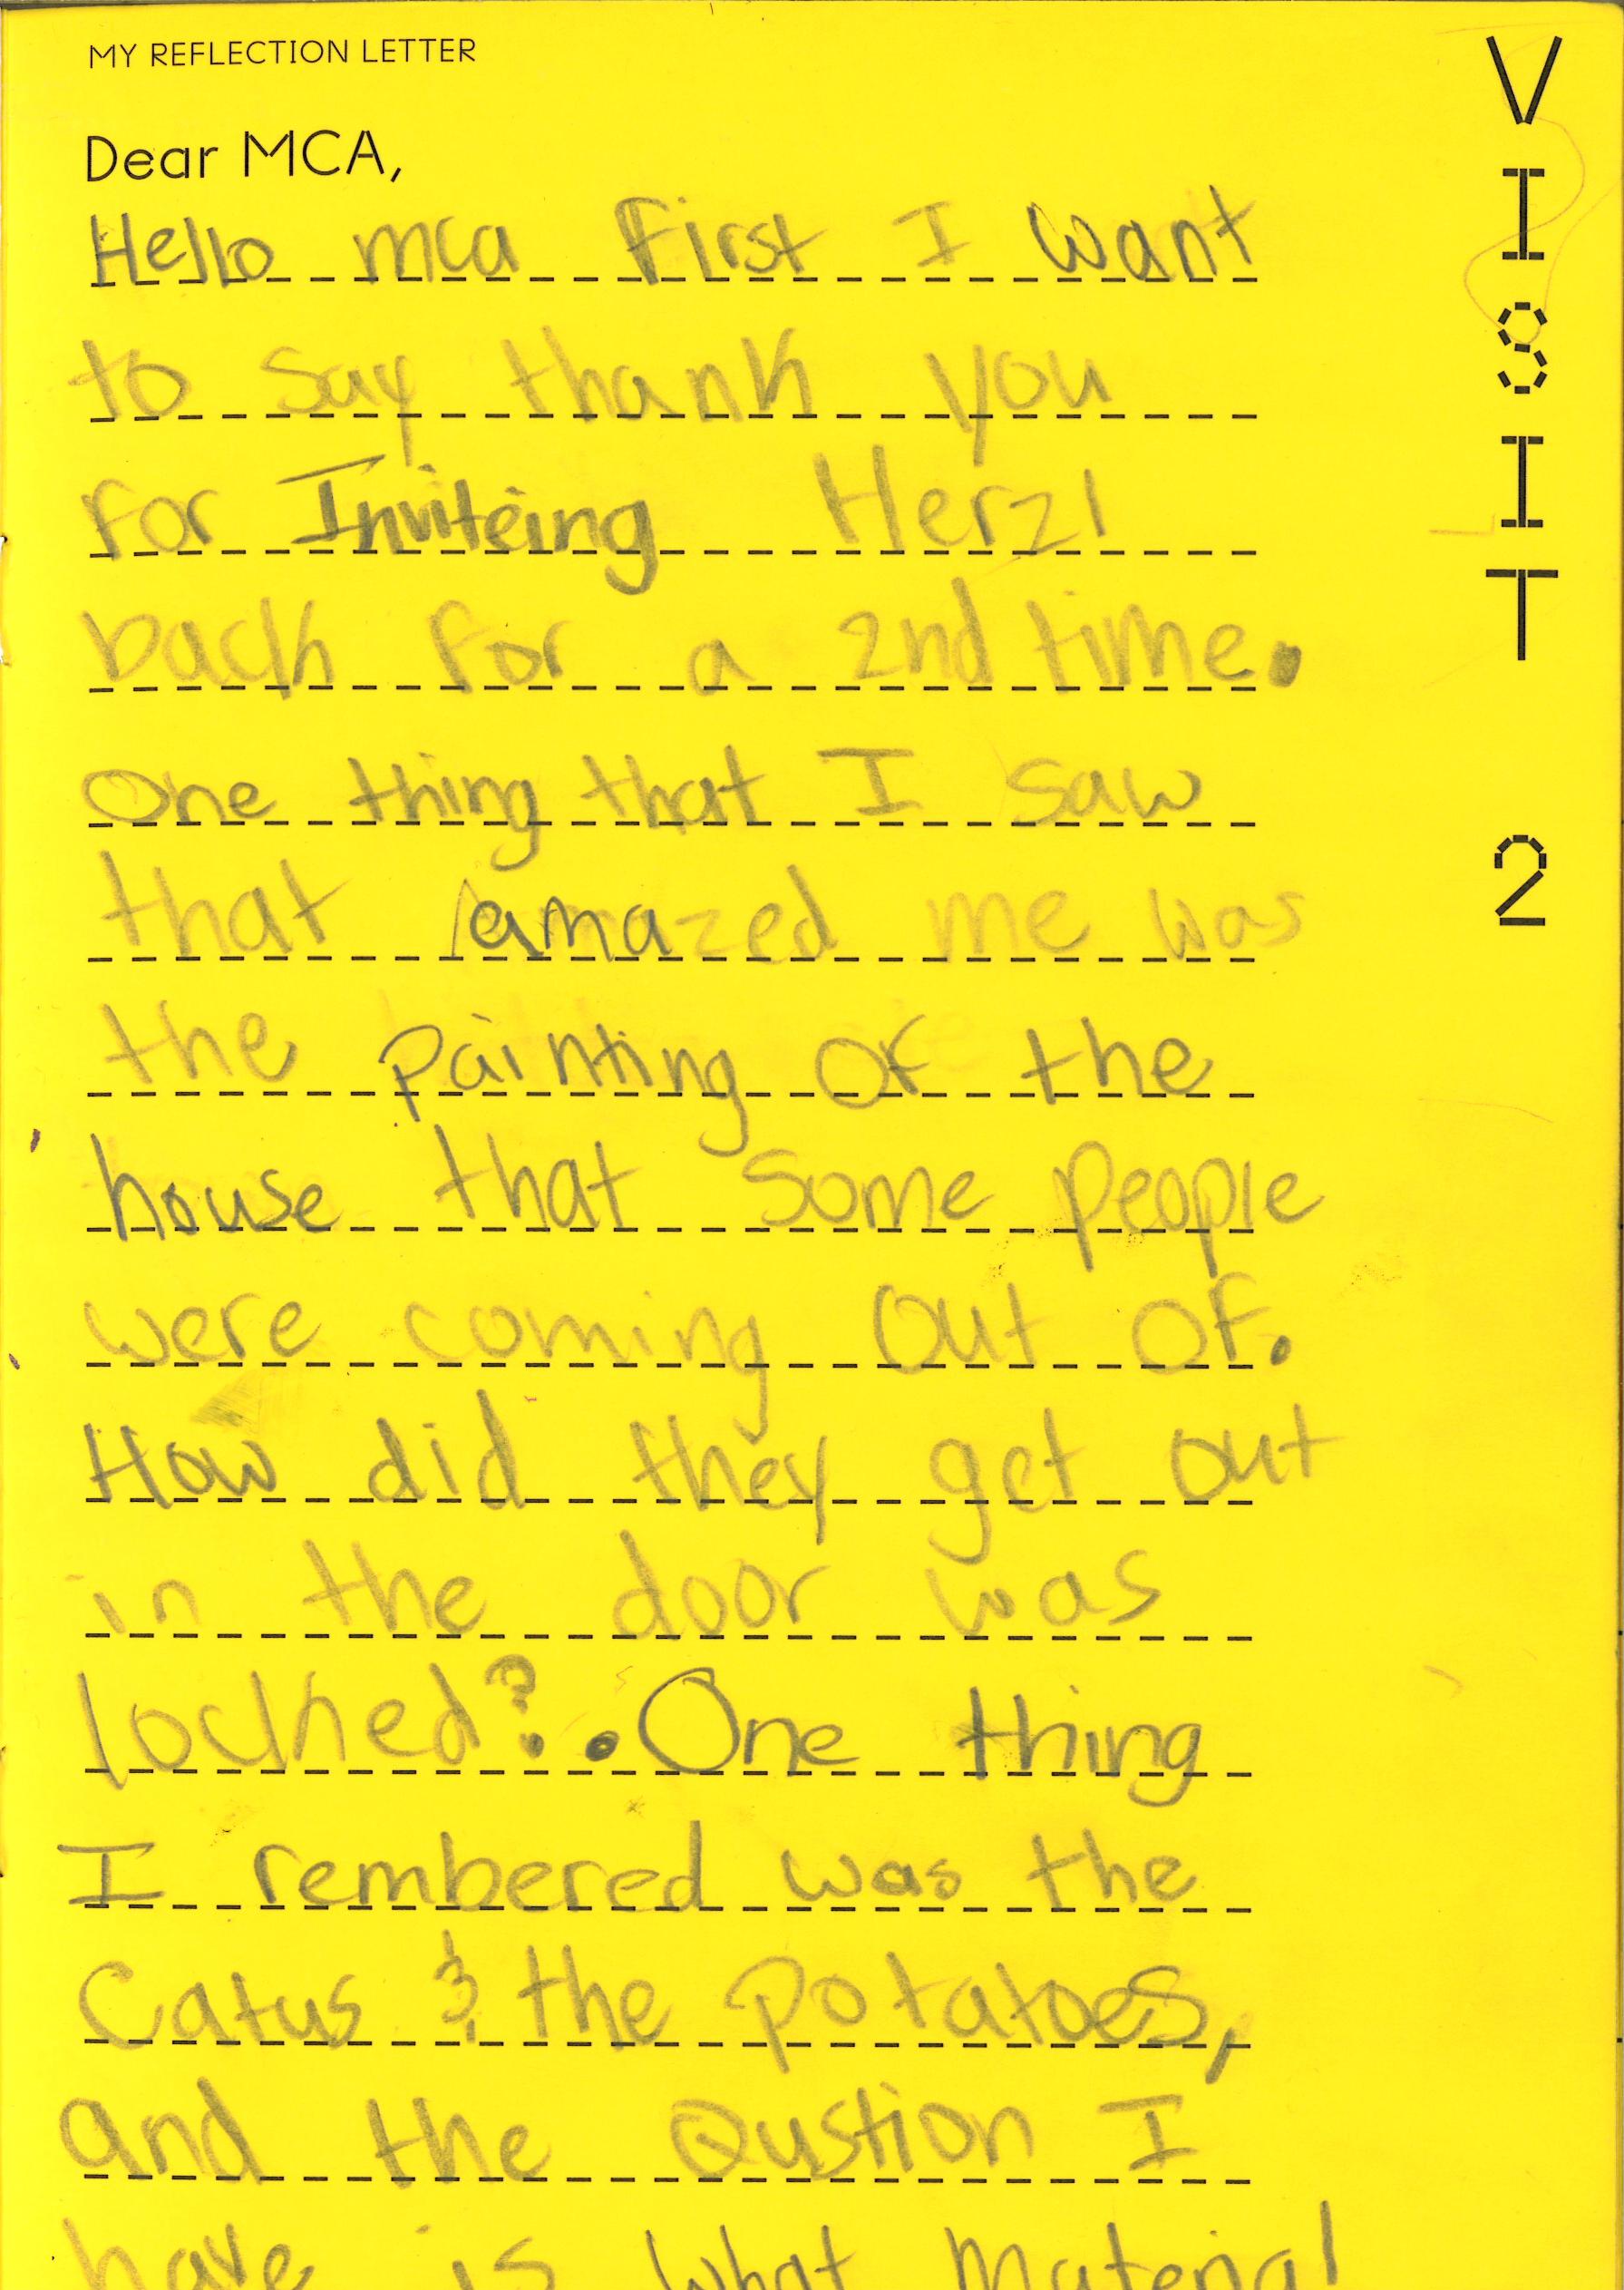 MY REFLECTION LETTER
Dear MCA,
Hello mca First I want
to say thank you
for Inviteing Herzl
back for a 2nd time.
One thing that I saw
that amazed me was
the painting of the
house that some people
were coming out of.
How did they get out
in the door was
locked?. One thing
I rembered was the
Catus & the potatoes,
and the Qustion I
have is what Material
VISIT 2